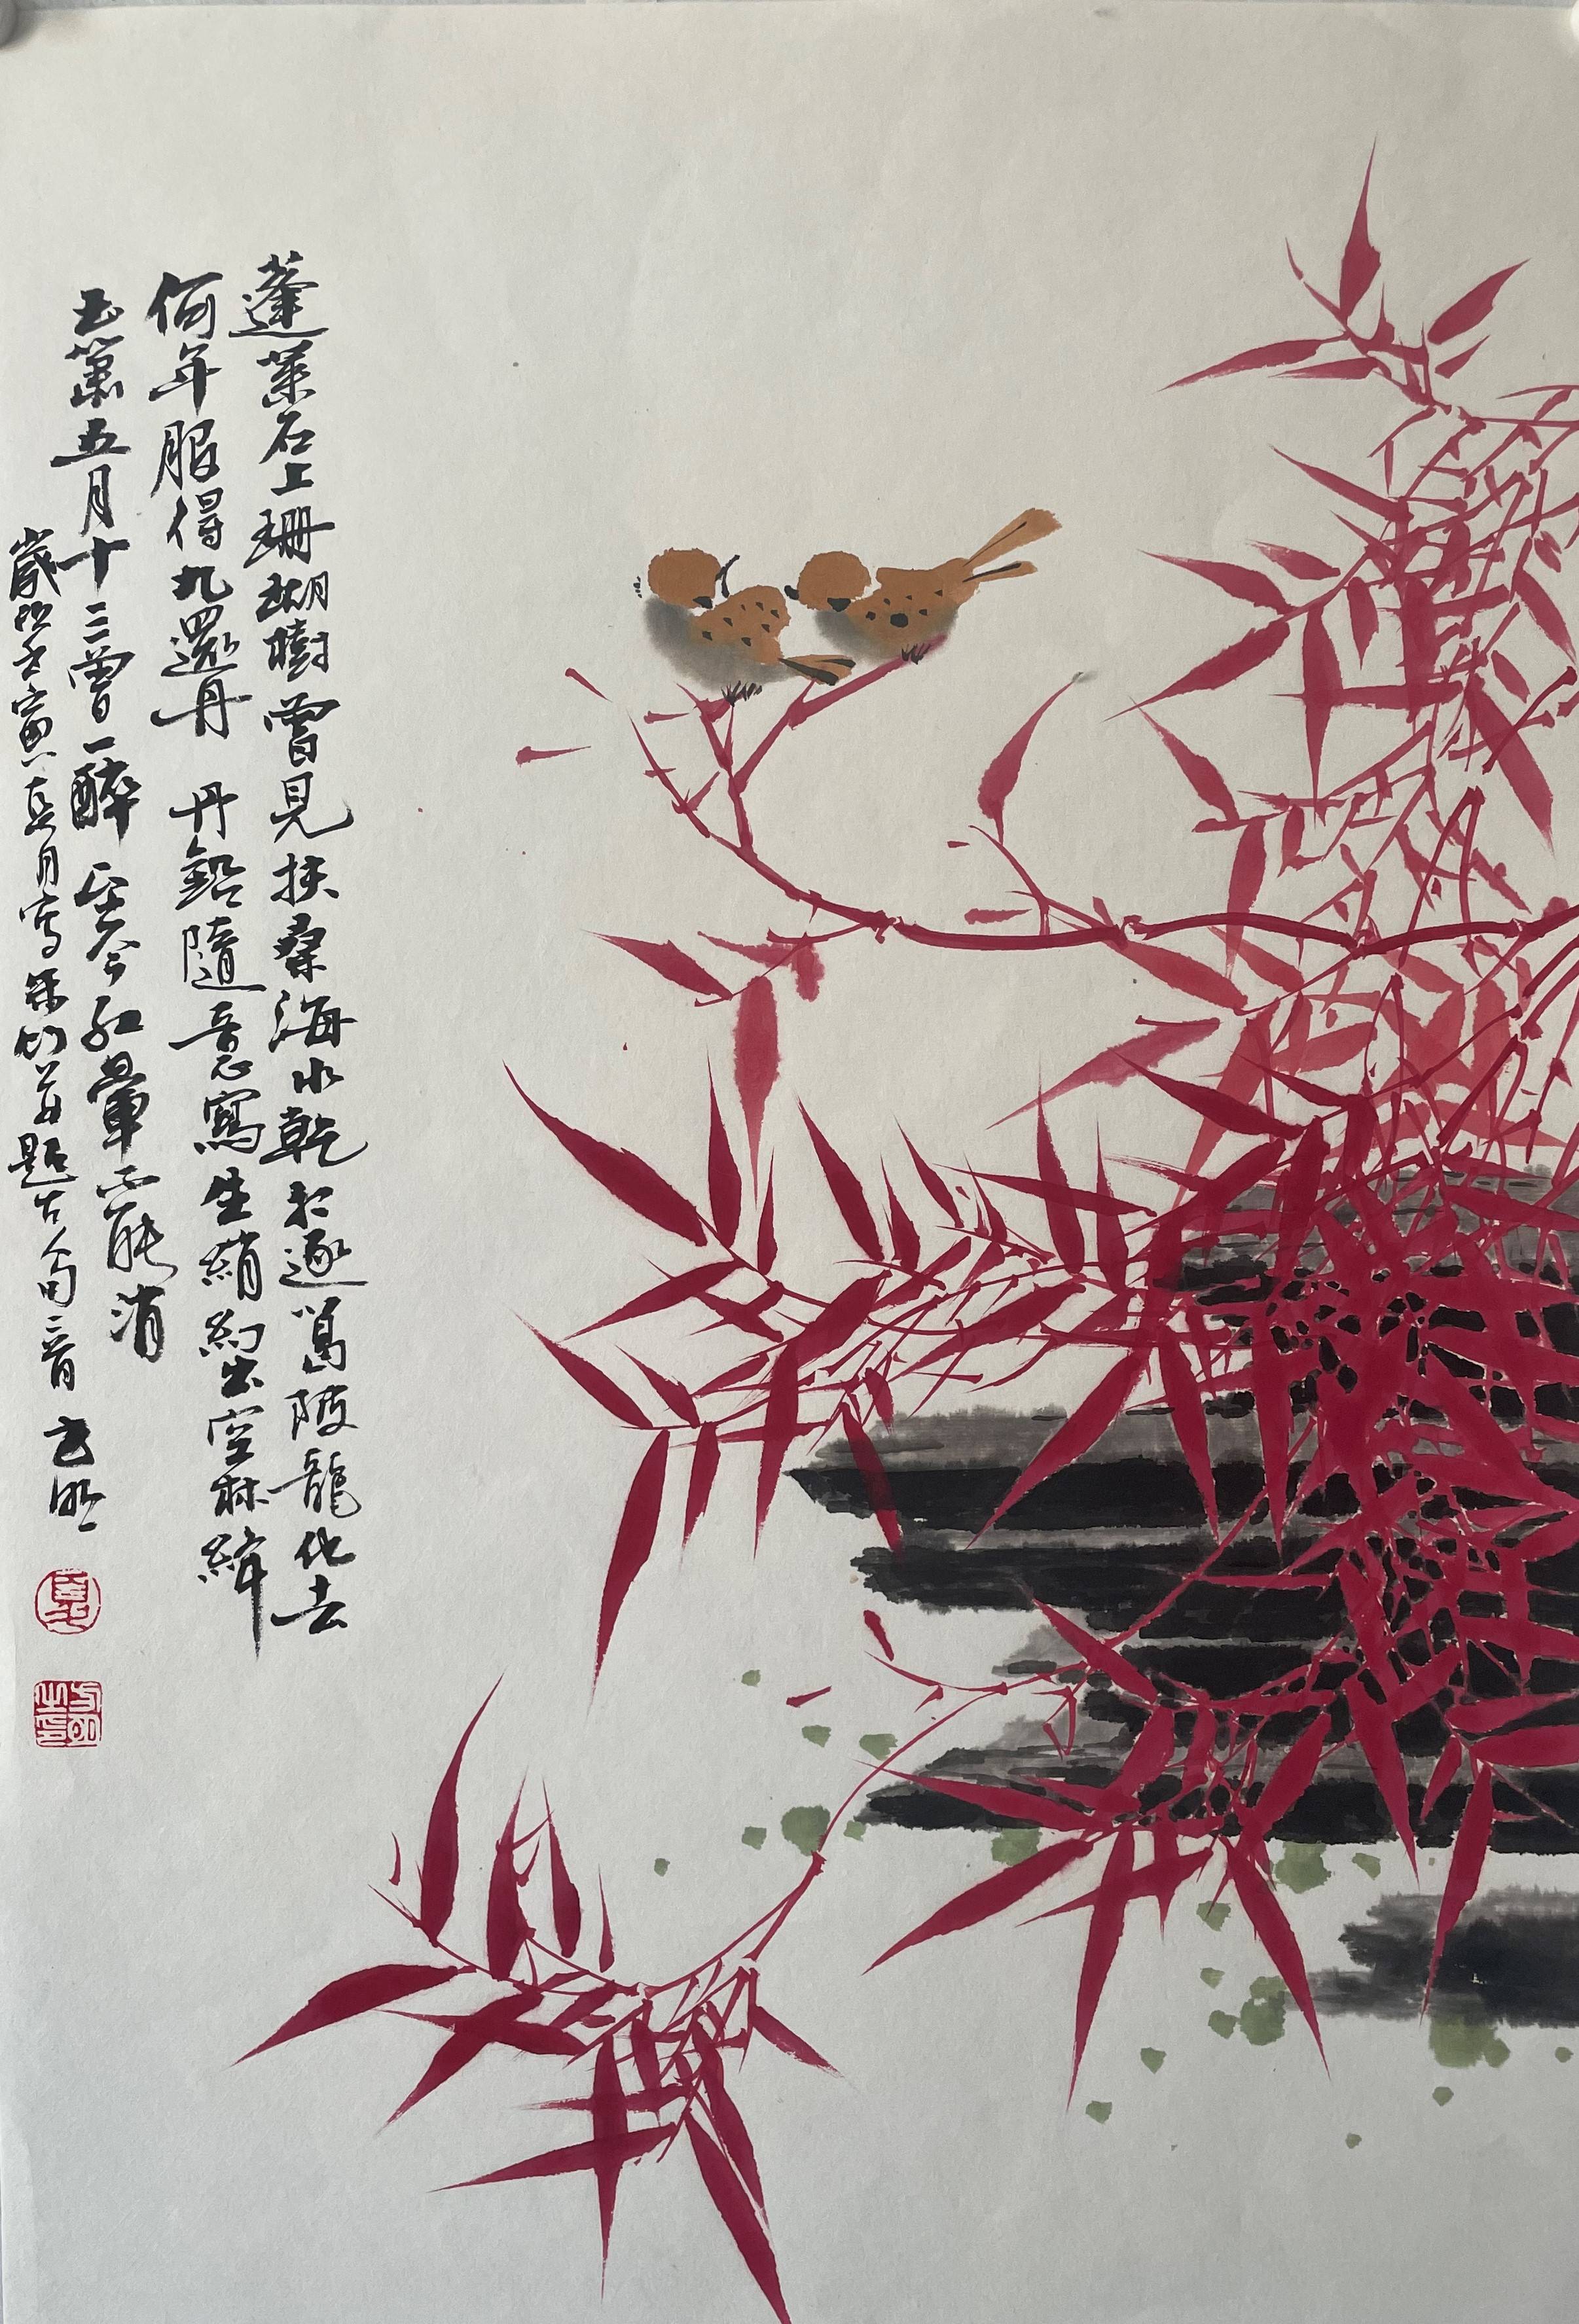 蓬萊石上珊瑚樹曾見扶桑海水乾相逐葛陂龍化去
何年服得九還丹 丹鉛隨意寫生綃幻出空林絳
玉簫五月十三曾一醉至今紅暈不能消
歲次壬寅夏月寫朱竹並題古人句二首 玄明